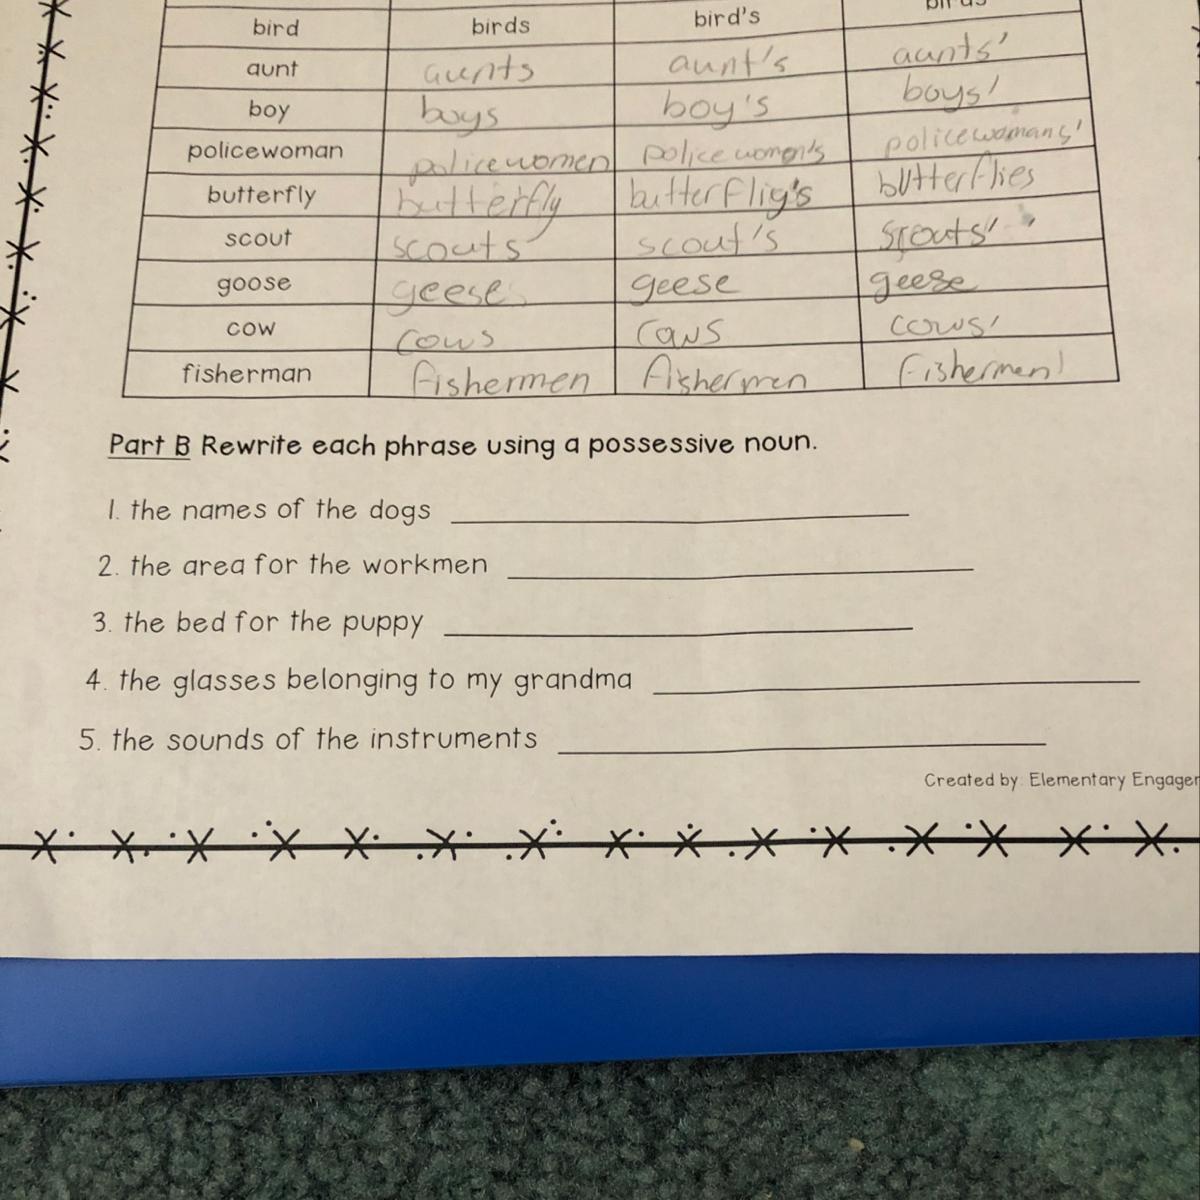 bird birds bird's birds'
aunt aunts aunt's aunts'
boy boys boy's boys'
policewoman policewomen policewomen's policewomans'
butterfly butterfly butterfliy's butterflies
scout scouts scout's scouts'
goose geese geese geese
cow cows cows cows'
fisherman fishermen fishermen fishermen'
Part B Rewrite each phrase using a possessive noun.
1. the names of the dogs
2. the area for the workmen
3. the bed for the puppy
4. the glasses belonging to my grandma
5. the sounds of the instruments
Created by: Elementary Engager